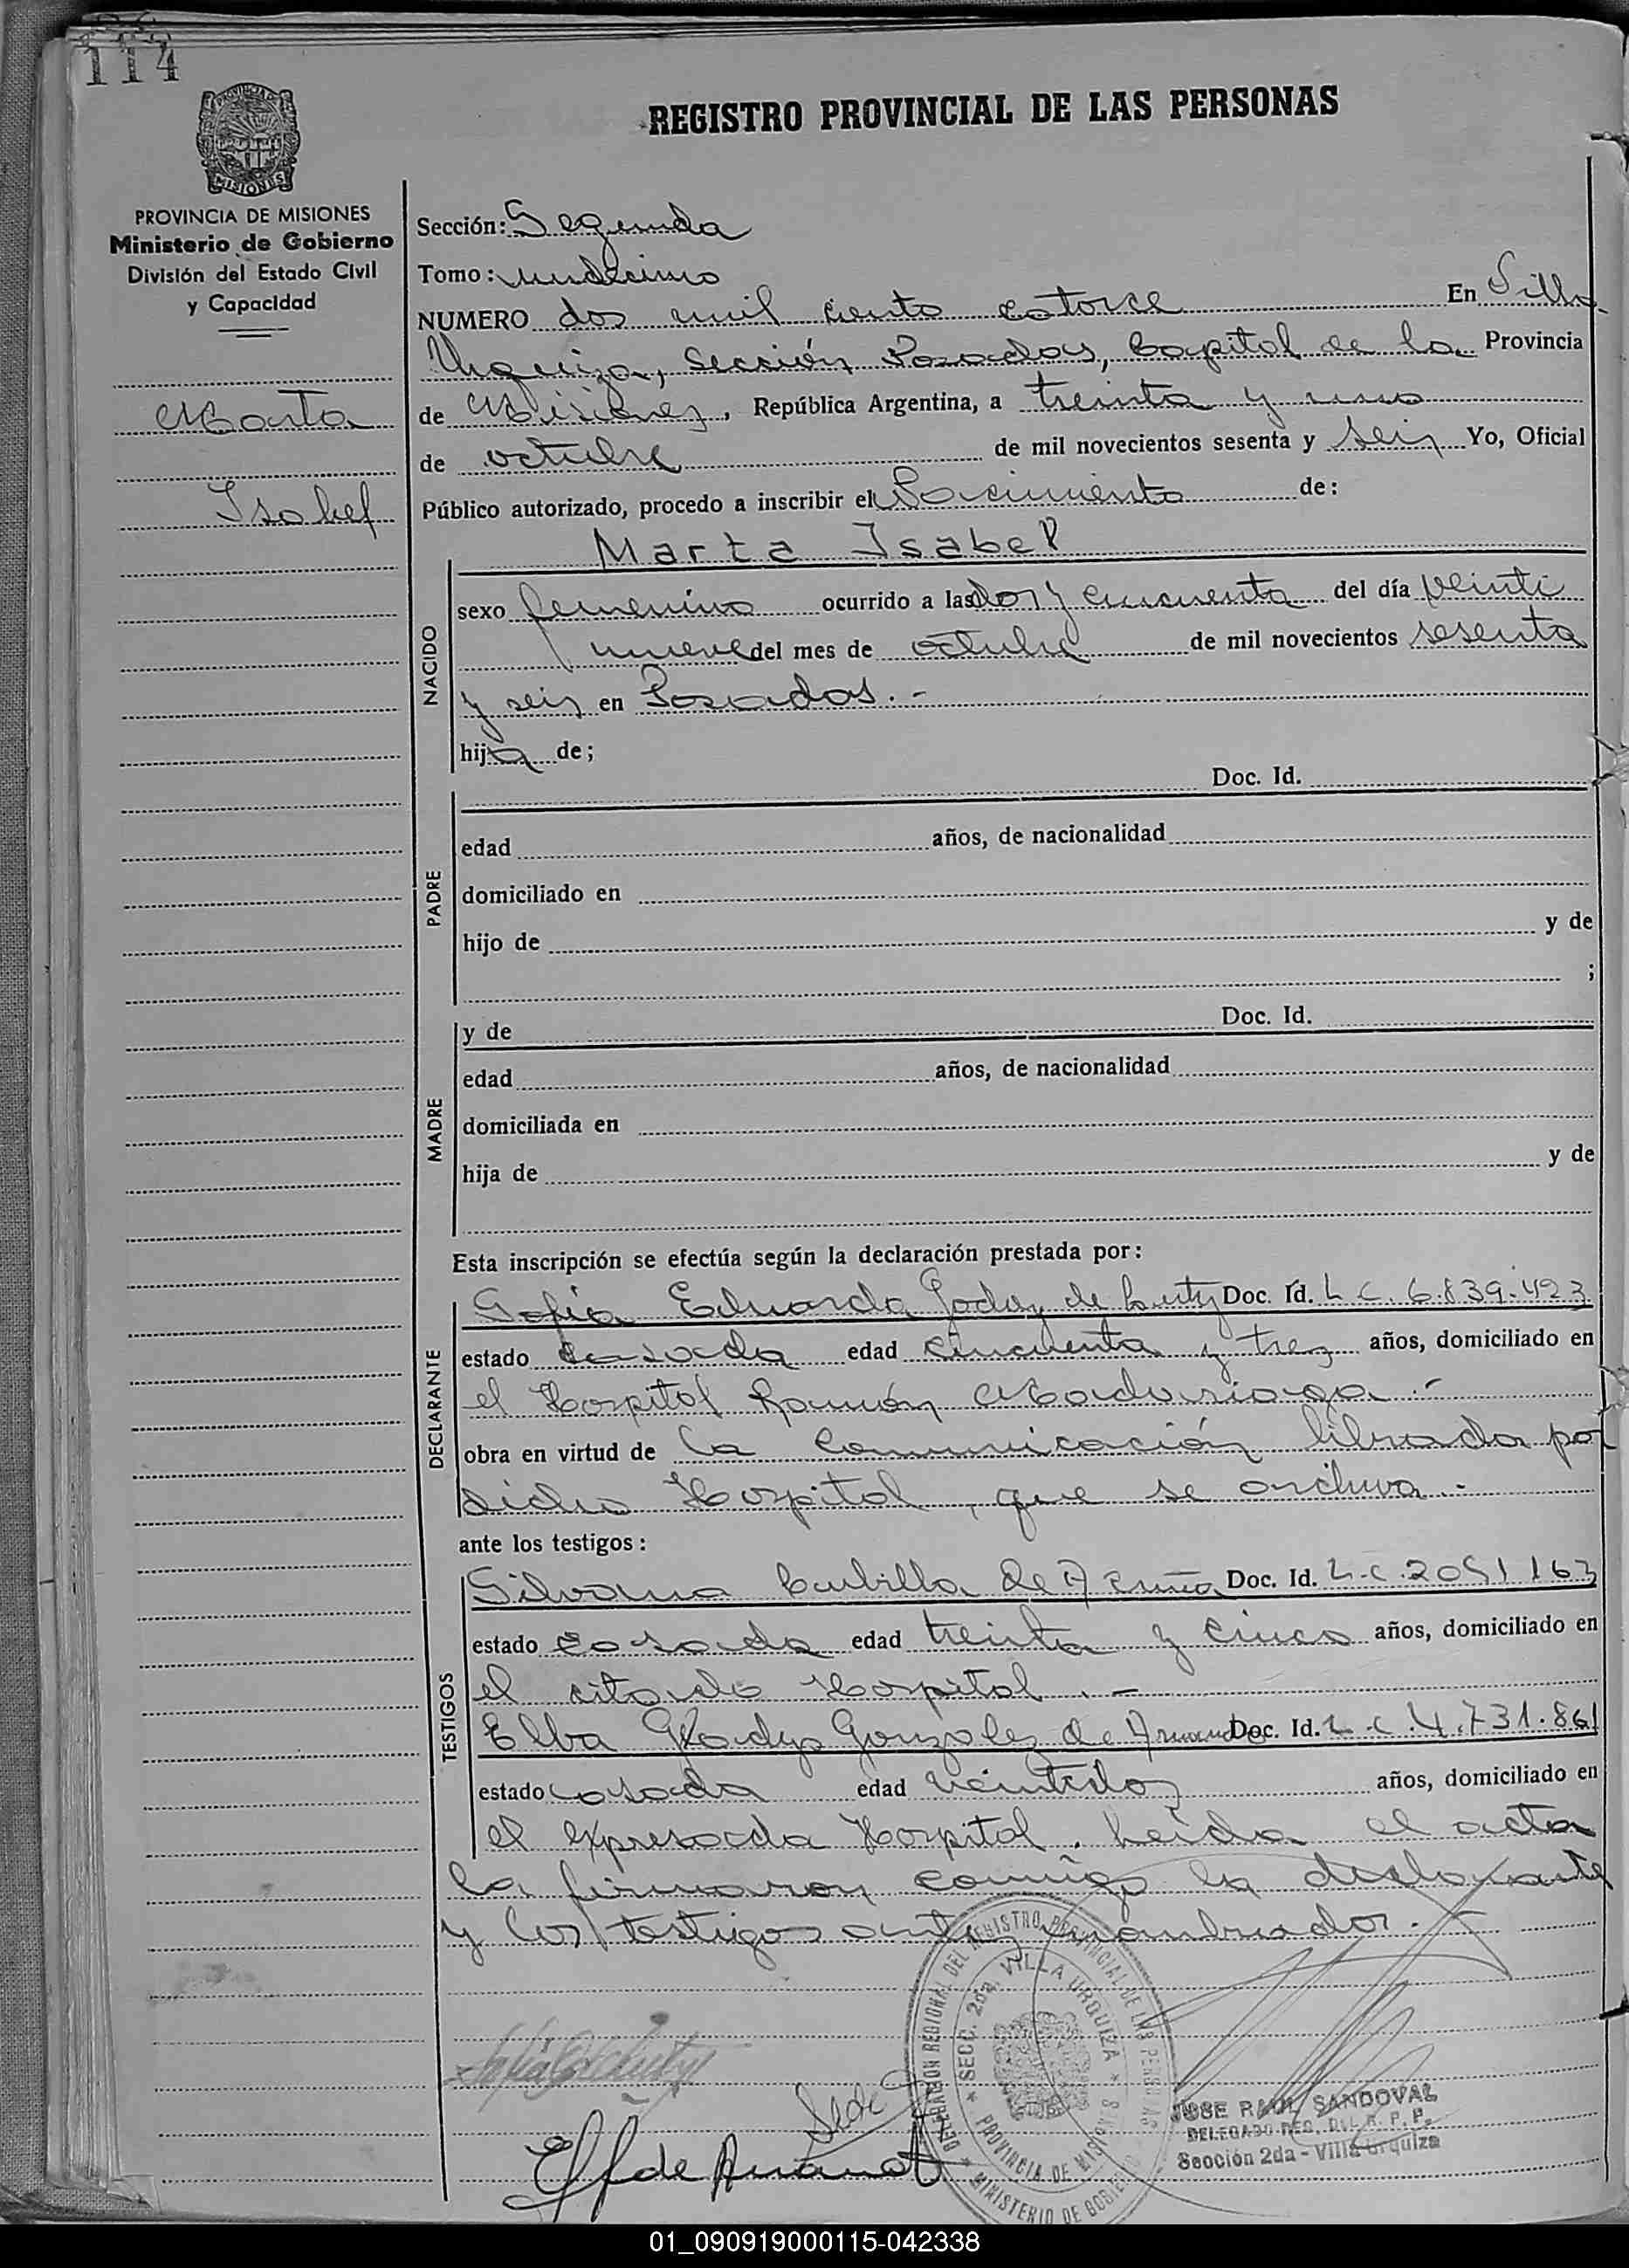 114
REGISTRO PROVINCIAL DE LAS PERSONAS
MISIONES
PROVINCIA DE MISIONES
Ministerio de Gobierno
División del Estado Civil
y Capacidad
Marta
Isabel
Sección: Segunda
Tomo: undécimo
NUMERO dos mil ciento catorce En Villa
Urquiza, Sección Posadas, Capital de la Provincia
de Misiones, República Argentina, a treinta y uno
de octubre de mil novecientos sesenta y seis Yo, Oficial
Público autorizado, procedo a inscribir el Nacimiento de:
Marta Isabel
NACIDO
sexo femenino ocurrido a las dos y cincuenta del día veinti
nueve del mes de octubre de mil novecientos sesenta
y seis en Posadas.-
hija de;
PADRE
Doc. Id.
edad años, de nacionalidad
domiciliado en
hijo de y de
;
MADRE
y de Doc. Id.
edad años, de nacionalidad
domiciliada en
hija de y de
Esta inscripción se efectúa según la declaración prestada por:
DECLARANTE
Sofía Eduarda Godoy de Doc. Id. L.C. 6.839.423
estado casada edad cincuenta y tres años, domiciliado en
el Hospital Ramón Madariaga.-
obra en virtud de la comunicación librada por
dicho Hospital, que se archiva.-
ante los testigos:
TESTIGOS
Silvana Cubilla de Acuña Doc. Id. L.C. 2051163
estado casada edad treinta y cinco años, domiciliado en
el citado Hospital.-
Elba Gladys Gonzalez de Doc. Id. L.C. 4.731.861
estado casada edad veintidos años, domiciliado en
el expresado Hospital. Leída el acta
la firmaron conmigo la declarante
y los testigos antes nombrados.-
DELEGACION REGIONAL DEL REGISTRO PROVINCIAL DE LAS PERSONAS
SECC. 2da. VILLA URQUIZA
PROVINCIA DE MISIONES
MINISTERIO DE GOBIERNO
JOSE RAUL SANDOVAL
DELEGADO REG. DEL R. P. P.
Sección 2da - Villa Urquiza
01_090919000115-042338